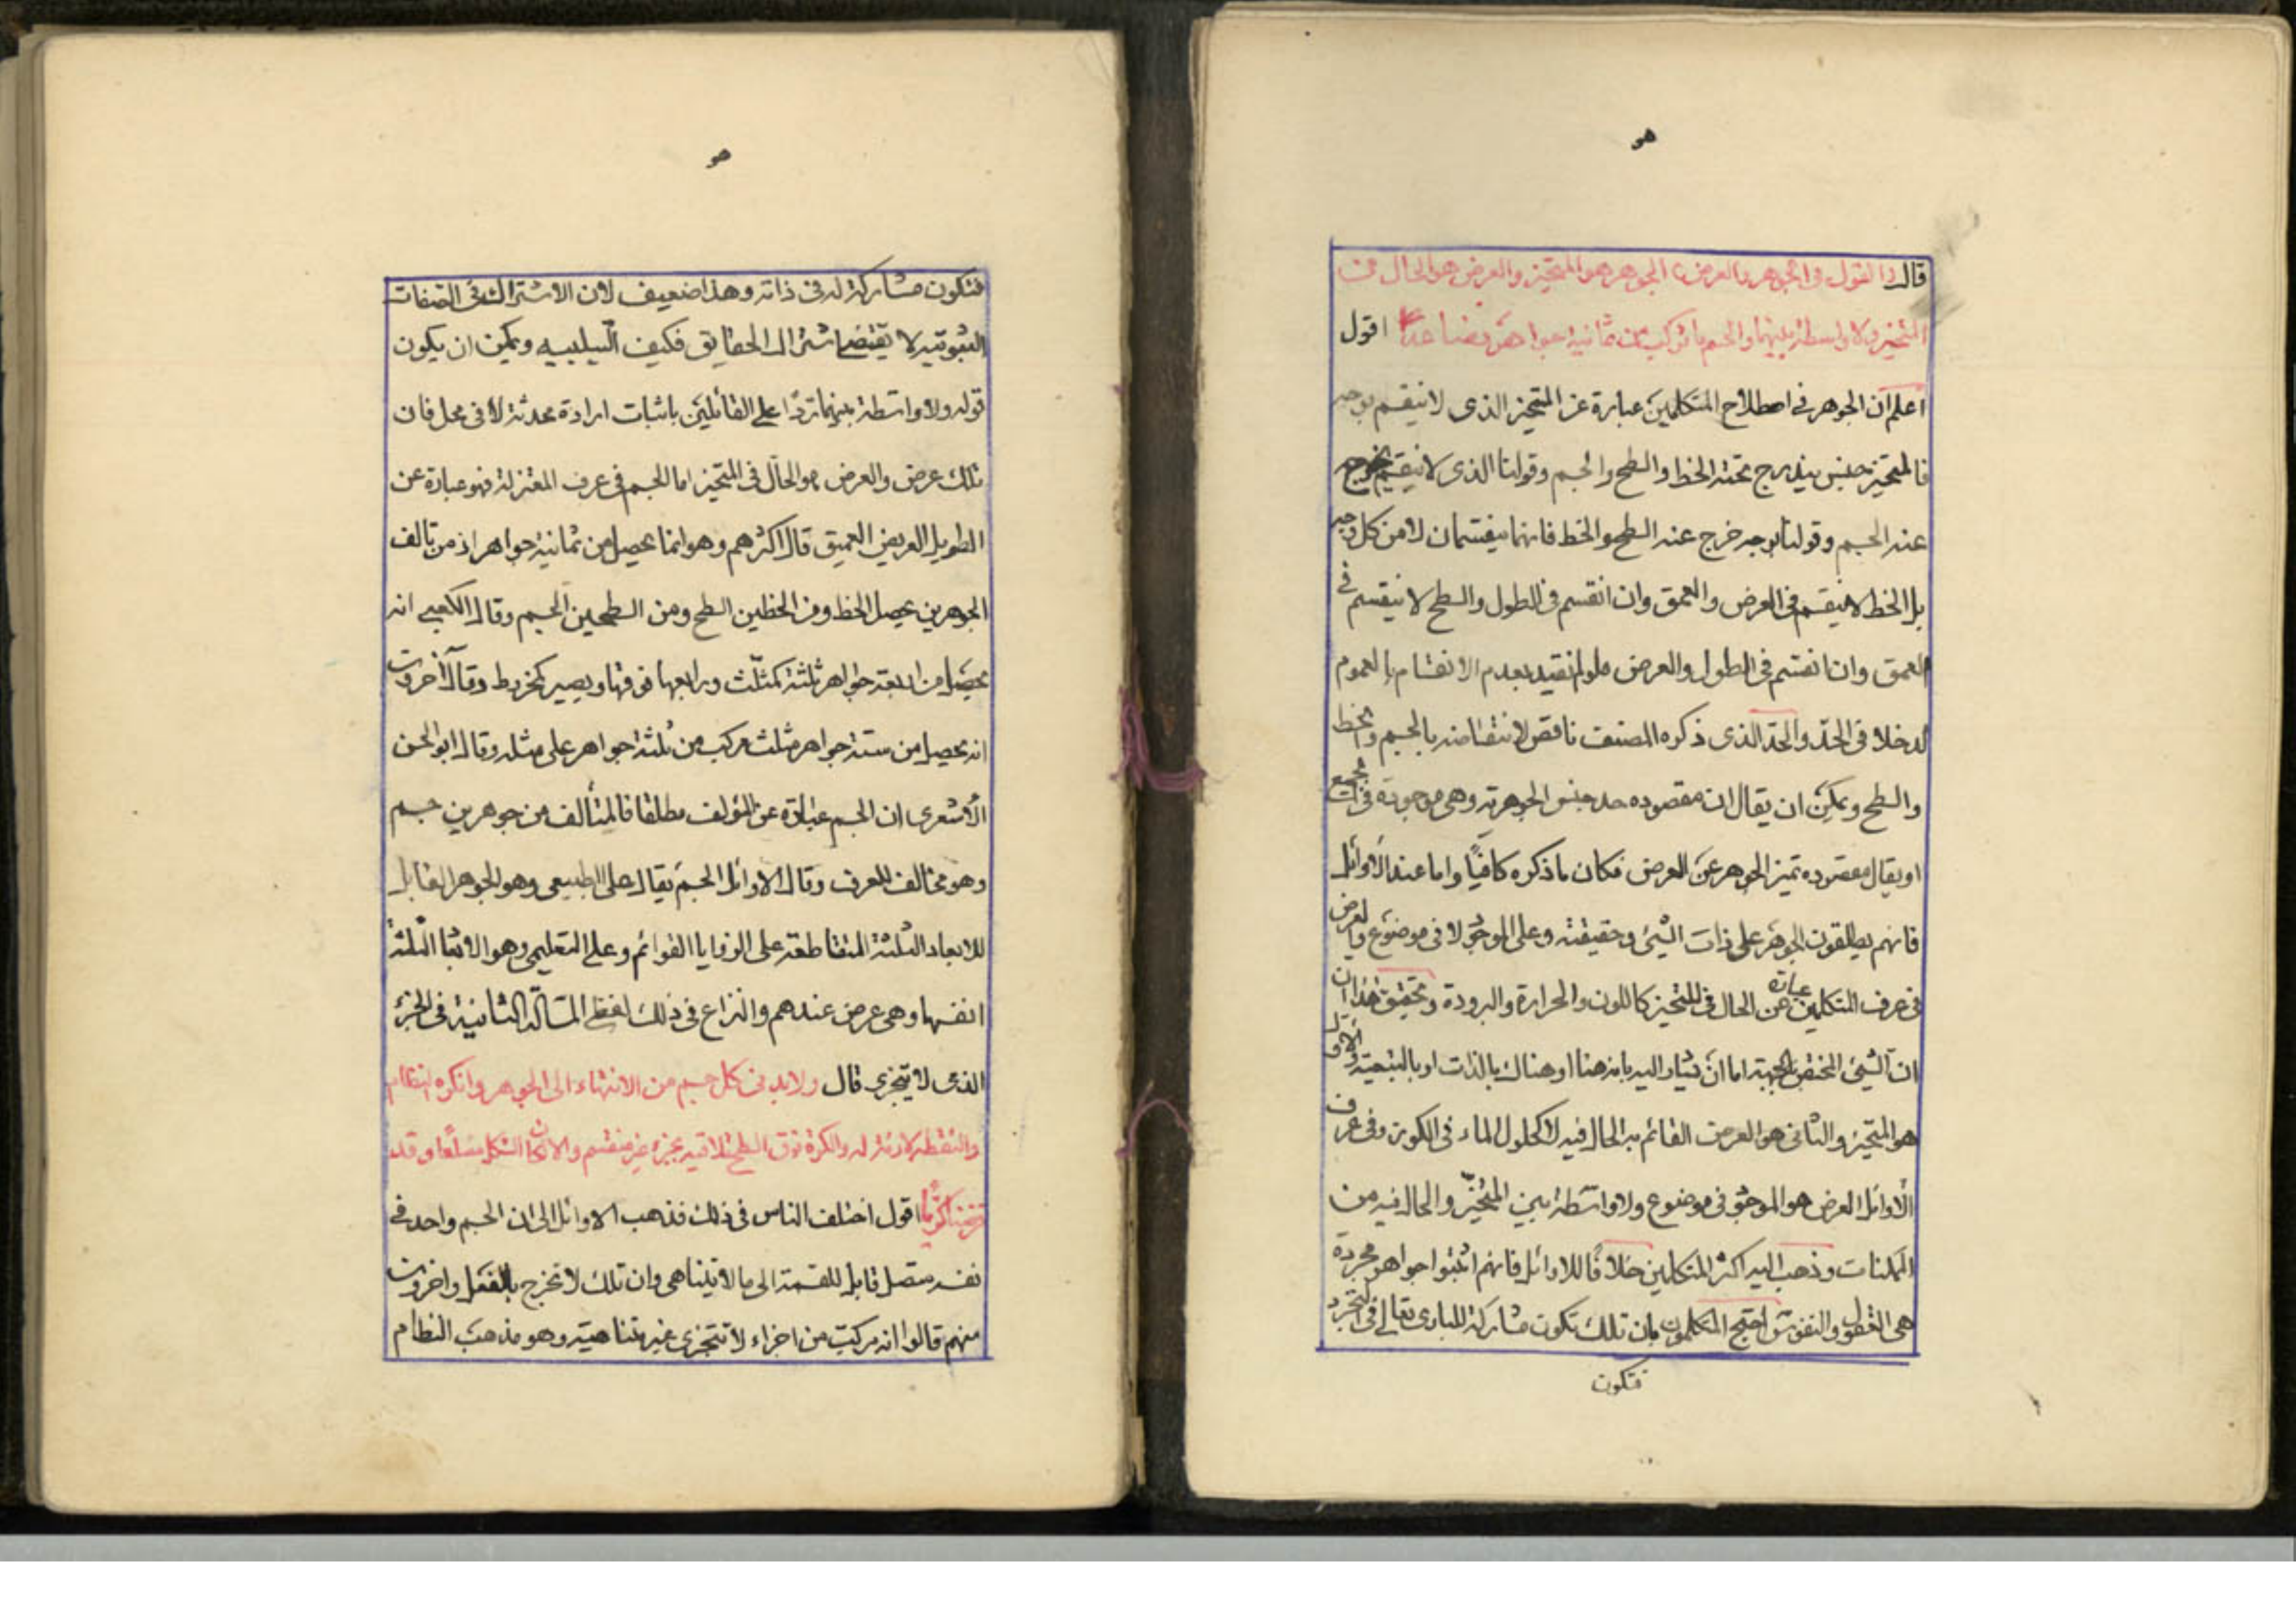 هو
قال القول فى الجوهر والعرض الجوهر هو المتحيز والعرض هو الحال فى
المتحيز ولا واسطة بينهما والجسم ما تركب من ثمانية جواهر فصاعدًا اقول
اعلم ان الجوهر فى اصطلاح المتكلمين عبارة عن المتحيز الذى لا ينقسم بوجه
فالمتحيز جنس يندرج تحته الخط والسطح والجسم وقولنا الذى لا ينقسم يخرج
عنه الجسم وقولنا بوجه خرج عنه السطح والخط فانهما ينقسمان لا من كل وجه
بل الخط لا ينقسم فى العرض والعمق وان انقسم فى الطول والسطح لا ينقسم فى
العمق وان انقسم فى الطول والعرض فلو لم نقيد بعدم الانقسام بالعموم
لدخلا فى الحدّ والحدّ الذى ذكره المصنف ناقص لانتقاضه بالجسم والخط
والسطح ويمكن ان يقال ان مقصوده حد جنس الجوهرية وهى موجودة فى
او يقال مقصوده تميز الجوهر عن العرض فكان ما ذكره كافيًا واما عند الاوائل
فانهم يطلقون الجوهر على ذات الشئ وحقيقته وعلى الموجود لا فى موضوع والعرض
فى عرف المتكلمين عبارة عن الحال فى المتحيز كاللون والحرارة والبرودة وتحقيق هذا ان
ان الشئ المختص بالجهة اما ان يشار اليه بانه هنا او هناك بالذات او بالتبعية والاول
هو المتحيز والثانى هو العرض القائم به الحال فيه لا كحلول الماء فى الكوز وفى عرف
الاوائل العرض هو الموجود فى موضوع ولا واسطة بين المتحيّز والحال فيه من
الممكنات وذهب اليه اكثر المتكلمين خلافًا للاوائل فانهم اثبتوا جواهر مجردة
هى العقول والنفوس احتج المتكلمون بان تلك تكون مشاركة للبارى تعالى فى التجرد
فتكون
هو
فتكون مشاركة له فى ذاته وهذا ضعيف لان الاشتراك فى الصفات
الثبوتية لا يقتضى اشتراك الحقايق فكيف السلبيه ويمكن ان يكون
قوله ولا واسطة بينهما ردًا على القائلين باثبات ارادة محدثة لا فى محل فان
تلك عرض والعرض هو الحالّ فى المتحيز اما الجسم فى عرف المعتزلة فهو عبارة عن
الطويل العريض العميق قال اكثرهم وهو انما يحصل من ثمانية جواهر اذ من تالف
الجوهرين يحصل الخط ومن الخطين السطح ومن السطحين الجسم وقال الكعبى انه
يحصل من اربعة جواهر ثلثة كمثلّث ورابعها فوقها ويصير كمخروط وقال آخرون
انه يحصل من ستة جواهر مثلث مركب من ثلثة جواهر على مثله وقال ابو الحسن
الاشعرى ان الجسم عبارة عن المؤلف مطلقا فالمتألف من جوهرين جسم
وهو مخالف للعرف وقال الاوائل الجسم يقال على الطبيعى وهو الجوهر القابل
للابعاد الثلثة المتقاطعة على الزوايا القوائم وعلى التعليمى وهو الابعاد الثلثة
انفسها وهى عرض عندهم والنزاع فى ذلك لفظى المسألة الثانية فى الجزء
الذى لا يتجزى قال ولابد فى كل جسم من الانتهاء الى الجوهر وانكره النظام
والنقطة لازمة له والكرة فوق السطح تلاقيه بجزء غير منقسم والا لكان الشكل مضلعًا وقد
فرضناه كريًّا اقول اختلف الناس فى ذلك فذهب الاوائل الى ان الجسم واحد فى
نفسه متصل قابل للقسمة الى ما لا يتناهى وان تلك لا تخرج بالفعل واخرون
منهم قالوا انه مركب من اجزاء لا تتجزى غير متناهية وهو مذهب النظام